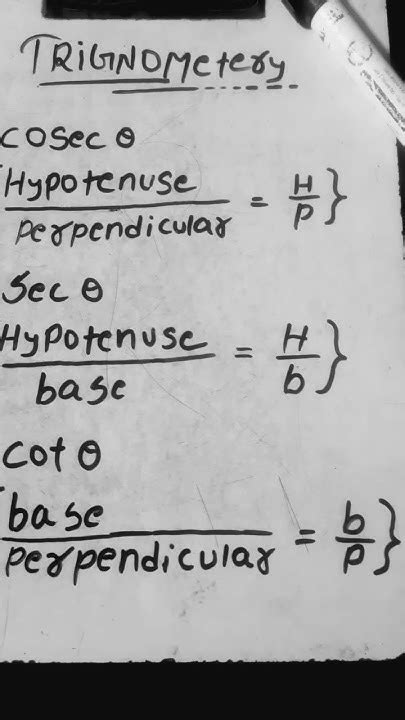 TRIGNOMetery
cosec θ
Hypotenuse / perpendicular = H / P }
Sec θ
Hypotenuse / base = H / b }
cot θ
base / perpendicular = b / P }